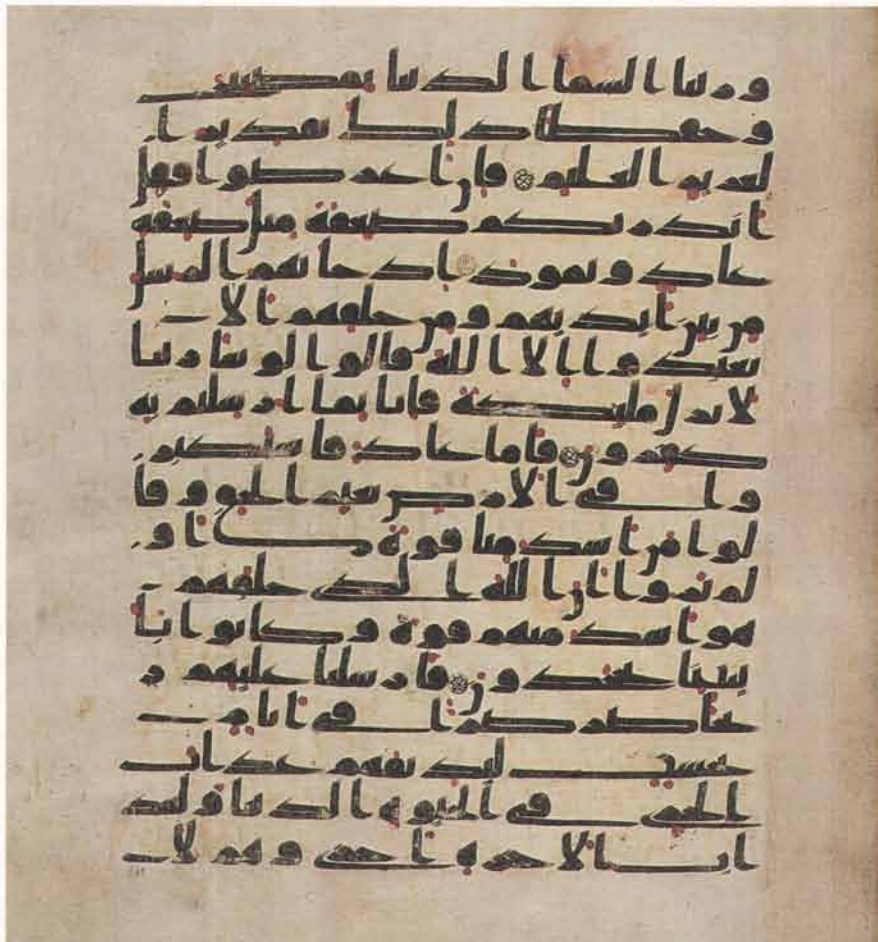 وزينا السما الدنيا بمصبيح
وحفظا ذلك تقدير ا
لعزيز العليم فان اعرضوا فقل
انذرتكم صعقة مثل صعقة
عاد وثمود اذ جاتهم الرسل
من بين ايديهم ومن خلفهم الا
تعبدوا الا الله قالوا لو شا ربنا
لانزل مليكة فانا بما ارسلتم به
كفرون فاما عاد فاستكبر
وا في الارض بغير الحق وقا
لوا من اشد منا قوة ا و
لم يروا ان الله الذي خلقهم
هو اشد منهم قوة وكانوا با
يتنا يجحدون فارسلنا عليهم ر
يحا صرصرا في ايام
نحست لنذيقهم عذاب
الخزي في الحيوة الدنيا ولعذ
اب الاخرة اخزى وهم لا